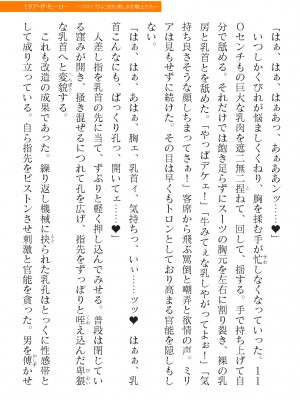 いつしかくびれが悩ましくくねり、胸を揉む手が忙しくなっていった。11
0センチもの巨大な乳肉を遮二無二捏ねて、回して、揺する。手で持ち上げて自
分で舐める。それだけでは飽き足らずにスーツの胸元を左右に割り裂き、裸の乳
房と乳首とを舐めた。「やっぱアケェ!」「牛みてぇな乳しやがってよぉ!」「気
持ち良さそうな顔しちまってさぁ!」客席から飛ぶ罵倒と嘲弄と欲情の声。ミリ
アは見もせずに続けた。その目は早くもトロンとしており高まる官能を隠しもし
ない。
「はぁ、はぁ、はぁあっ、あぁああンッ……♥」
「はぁ、はぁ、あはぁ、胸ェ、乳首ィ、気持ちっ、いぃ……ッッ♥ はぁぁ、乳
首こんなにも、ぱっくり孔っ、開いてェ……♥」
人差し指を乳首の先に当て、ずぷりと軽く押し込んでみせる。普段は閉じてい
る窪みが開き、掻き混ぜるにつれて孔を広げ、指先をずっぽりと咥え込んだ卑猥
な乳首へと変貌する。
これも改造の成果であった。繰り返し機械に抉られた乳孔はとっくに性感帯と
して成り立っている。自ら指先をピストンさせ刺激と官能を貪った。男を傅かせ